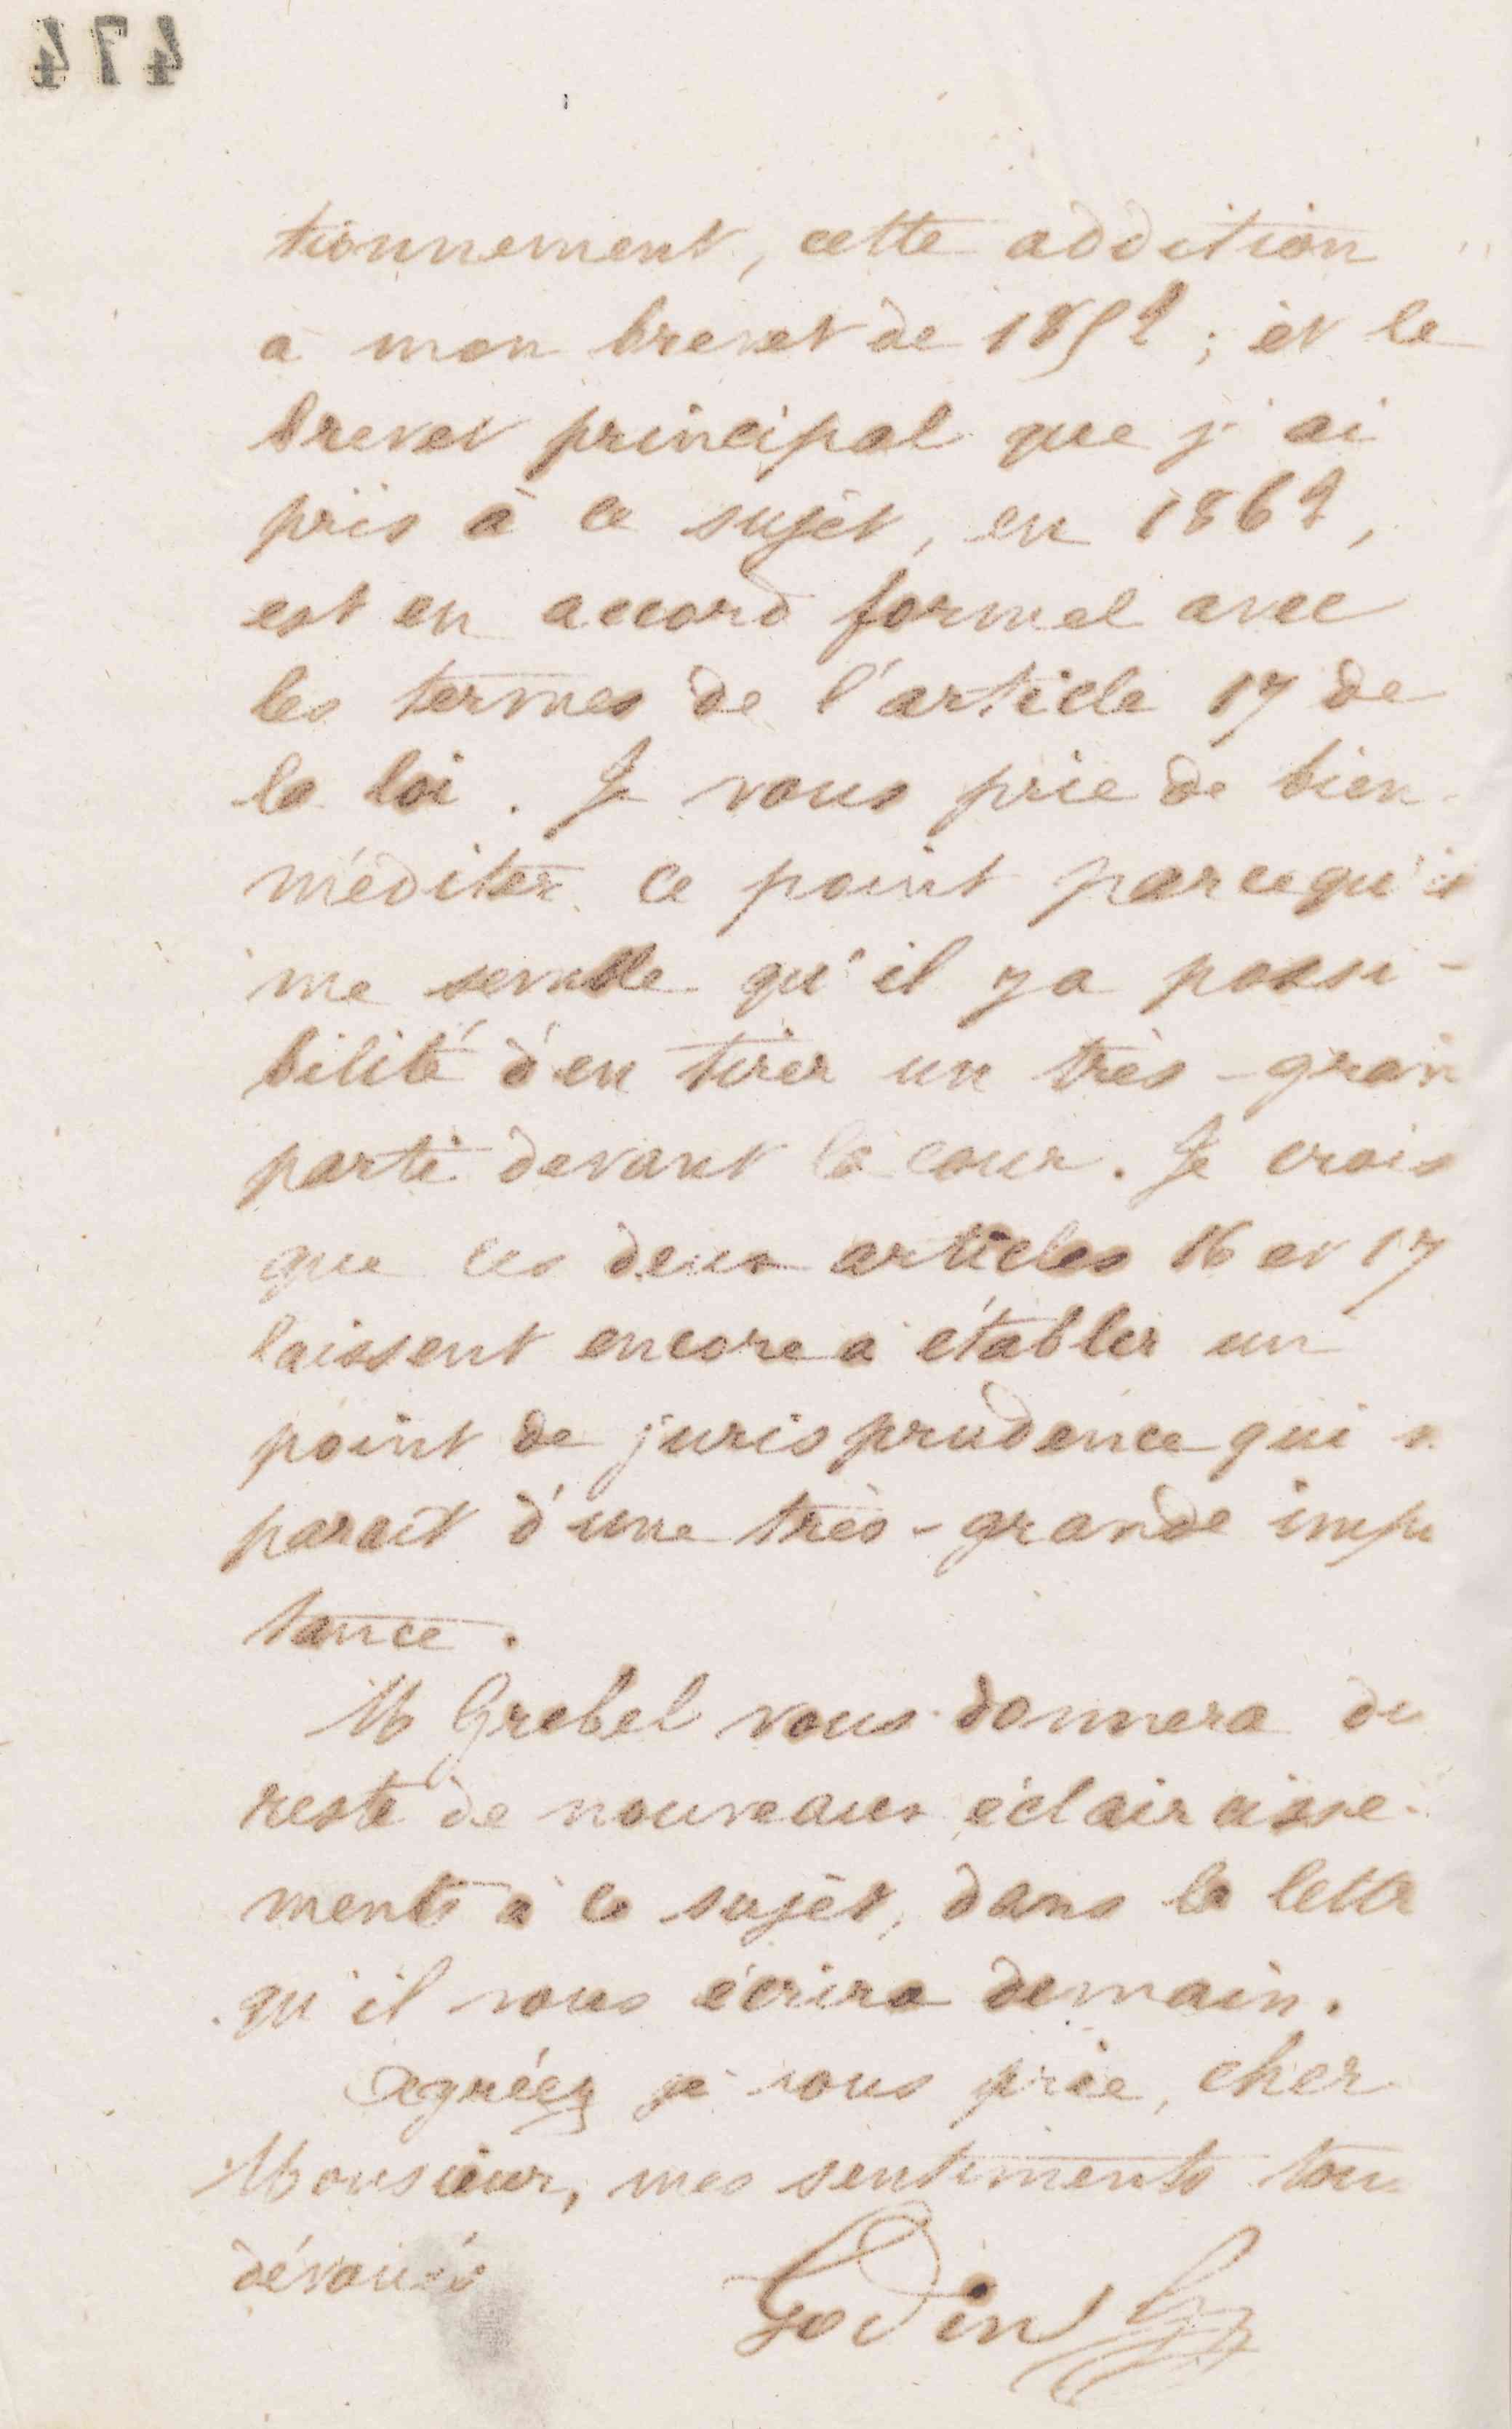 474
tionnement, cette addition
à mon brevet de 1859 ; et le
brevet principal que j'ai
pris à ce sujet, en 1869,
est en accord formel avec
les termes de l'article 17 de
la loi. Je vous prie de bien
méditer ce point parcequ'il
me semble qu'il y a possi-
bilité d'en tirer un très-gran
parti devant la cour. Je crois
que ces deux articles 16 et 17
laissent encore à établir un
point de jurisprudence qui
parait d'une très-grande impo
tance.
M Grebel vous donnera du
reste de nouveaux éclaircisse-
ments à ce sujet, dans la lettr
qu'il vous écrira demain.
Agréez je vous prie, cher
Monsieur, mes sentiments tou
dévoués
Godin